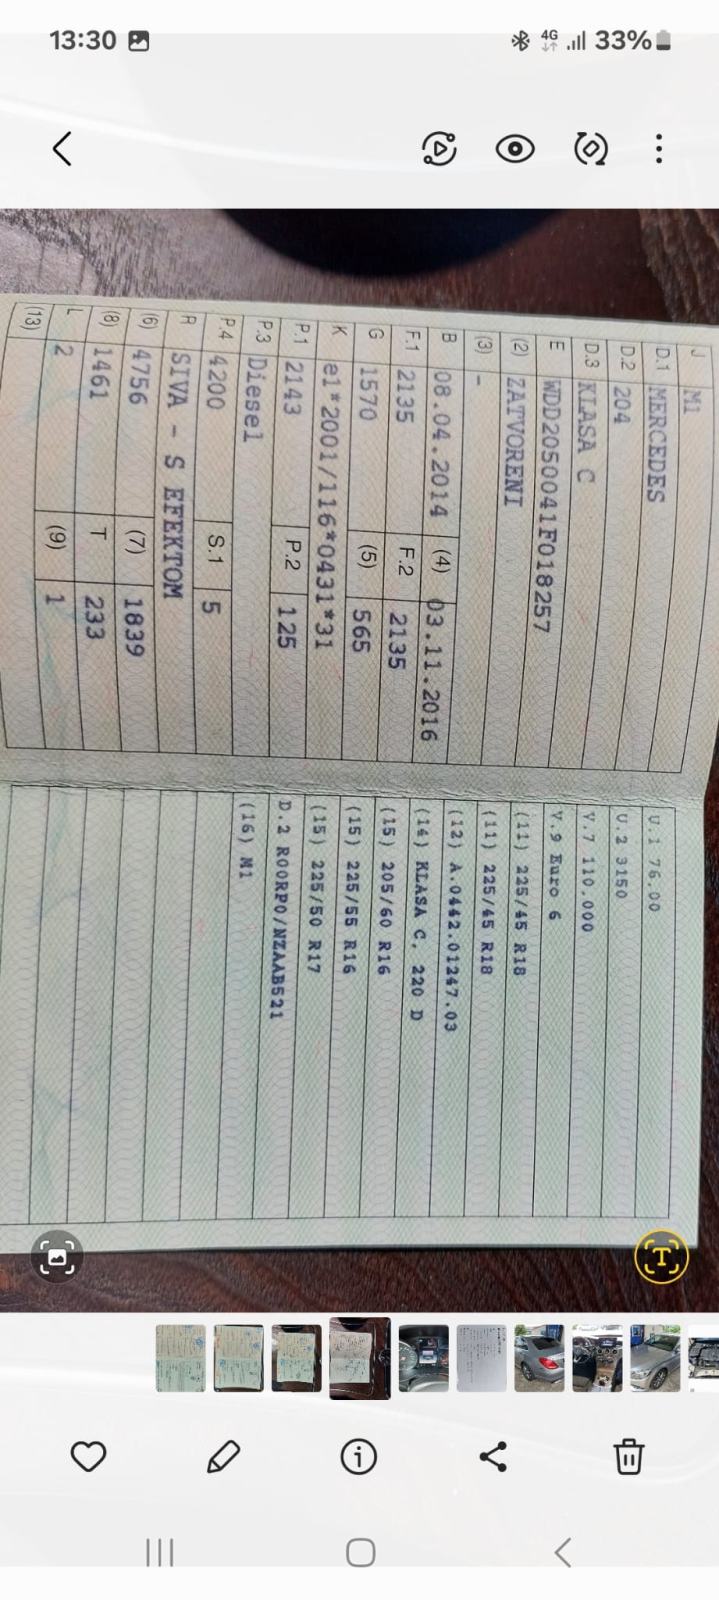 13:30
4G 33%
J M1
D.1 MERCEDES
D.2 204
D.3 KLASA C
E WDD2050041F018257
(2) ZATVORENI
(3) -
B 08.04.2014 (4) 03.11.2016
F.1 2135 F.2 2135
G 1570 (5) 565
K e1*2001/116*0431*31
P.1 2143 P.2 125
P.3 Diesel
P.4 4200 S.1 5
R SIVA - S EFEKTOM
(6) 4756 (7) 1839
(8) 1461 T 233
L 2 (9) 1
(13)
U.1 76.00
U.2 3150
V.7 110.000
V.9 Euro 6
(11) 225/45 R18
(11) 225/45 R18
(12) A.0442.01247.03
(14) KLASA C, 220 D
(15) 205/60 R16
(15) 225/55 R16
(15) 225/50 R17
D.2 R00RP0/NZAAB521
(16) M1
T